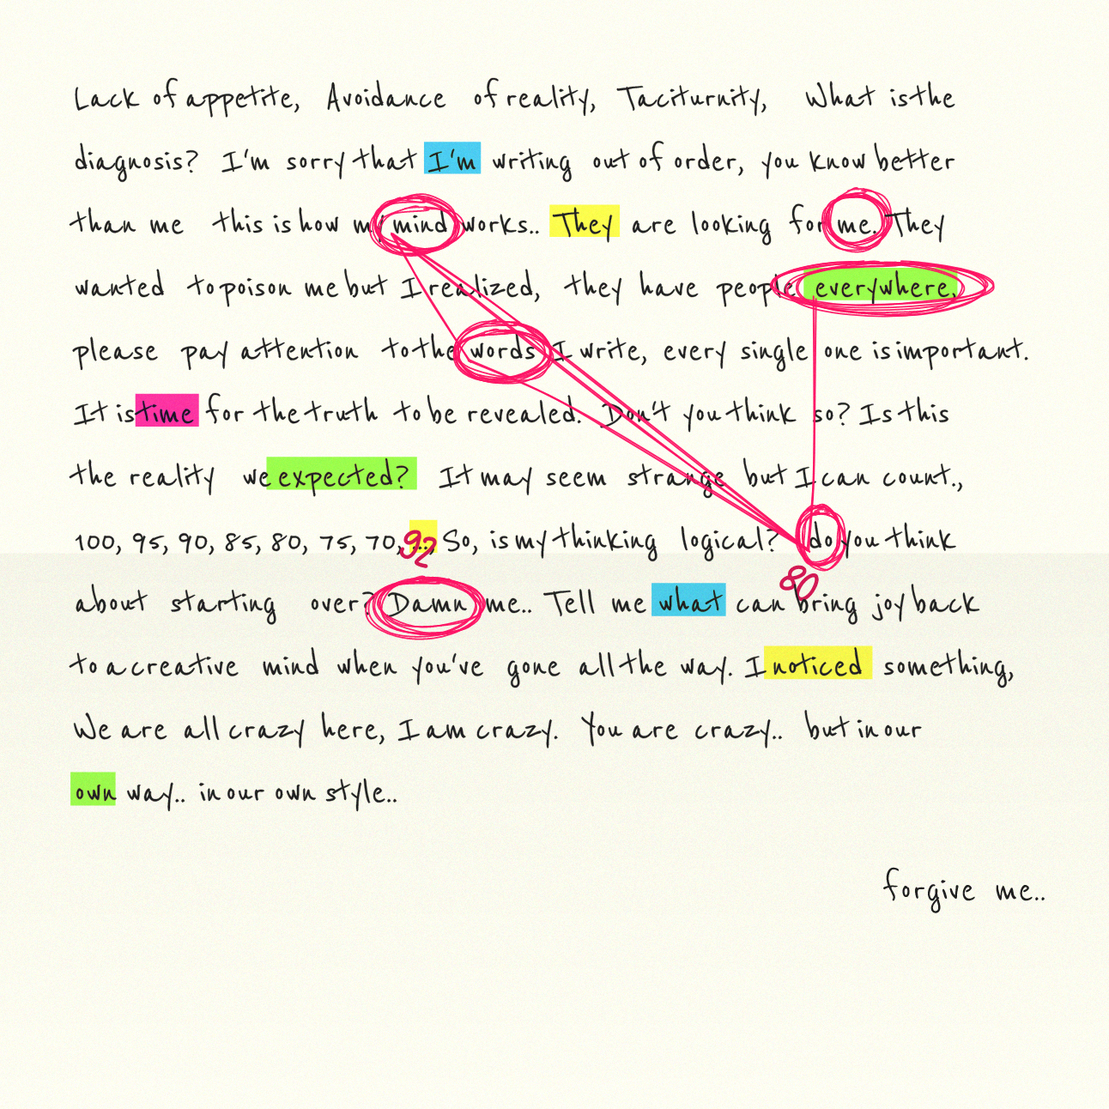 Lack of appetite, Avoidance of reality, Taciturnity, What is the
diagnosis? I'm sorry that I'm writing out of order, you know better
than me this is how my mind works.. They are looking for me. They
wanted to poison me but I realized, they have people everywhere,
please pay attention to the words I write, every single one is important.
It is time for the truth to be revealed. Don't you think so? Is this
the reality we expected? It may seem strange but I can count.,
100, 95, 90, 85, 80, 75, 70, 92 So, is my thinking logical? do you think
80
about starting over? Damn me.. Tell me what can bring joy back
to a creative mind when you've gone all the way. I noticed something,
We are all crazy here, I am crazy. You are crazy.. but in our
own way.. in our own style..
forgive me..